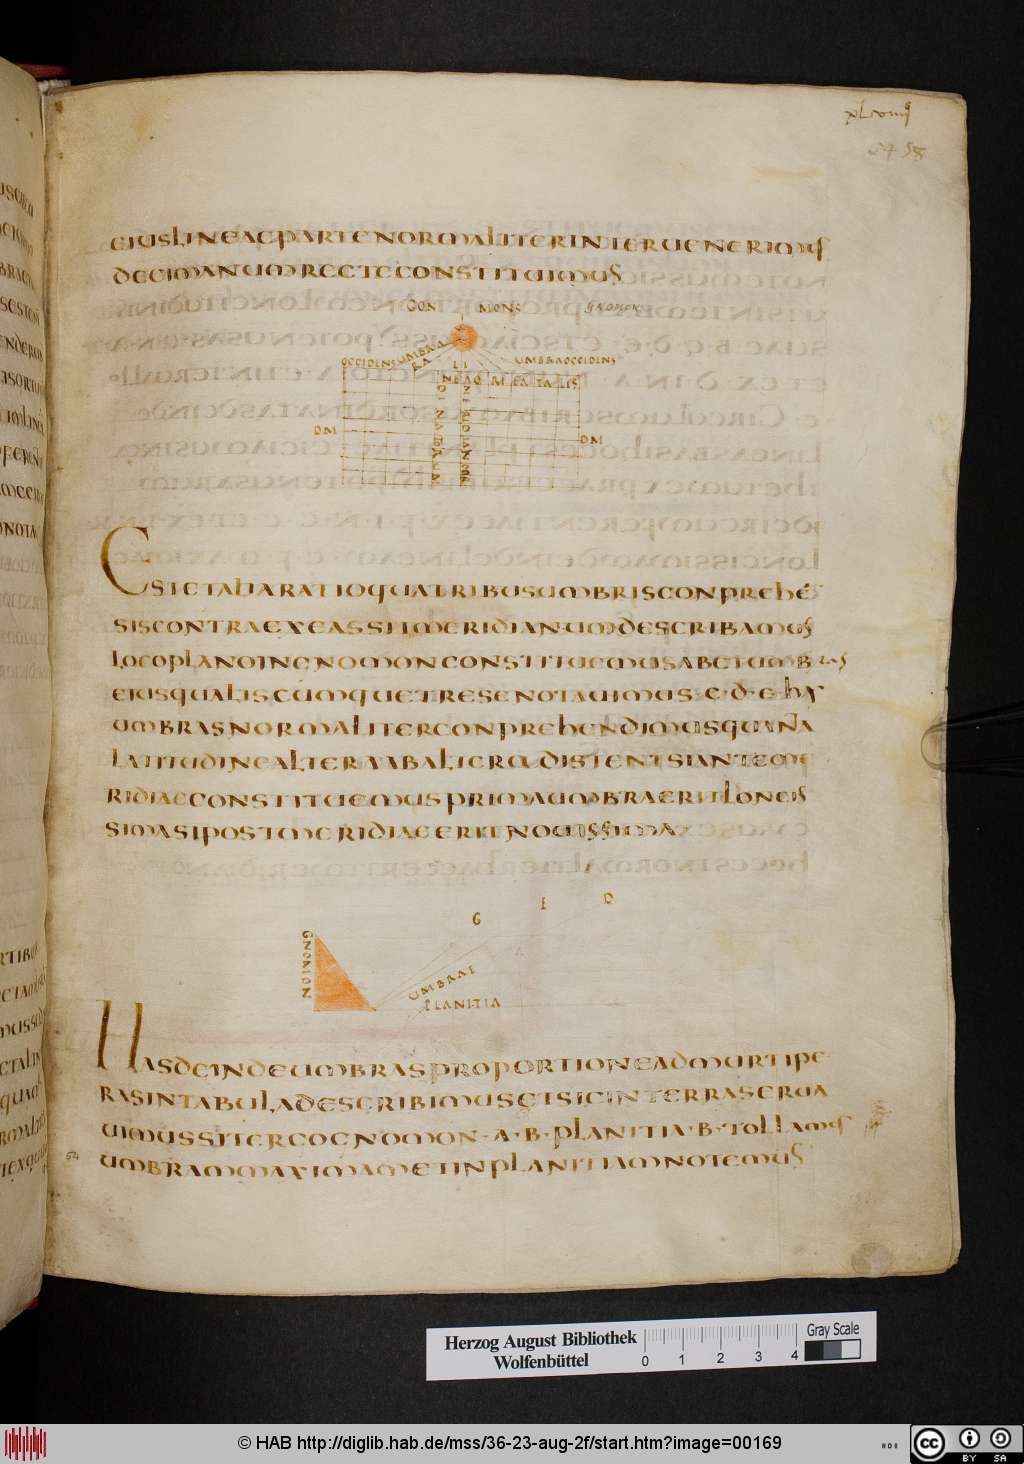 eius lineae parte normaliter interuenerimus
decimanum recte constituimus
GON MONS
UMBRA
OCCIDENS UMBRA OCCIDENS
LI
DM DM
Est et alia ratio qua tribus umbris conprehē
sis contra exeas si imeridianum describamus
loco plano in gnomon constituemus ab et umbras
eius qualis cumque tres enotauimus · c · d · e · has
umbras normaliter conprehendimus quana
latitudine altera ab altera distent si ante me
ridiae constituemus prima umbra erit longis
sima si post meridiae erit nouissima
G E D
GNOMON
UMBRAE
PLANITIA
Has deinde umbras proportione ad murtipe
ras in tabula describimus et sic in terra serua
uimus sit ergo gnomon · a · b · planitia · b · tollamus
umbram maximam et in planitiam notemus
Herzog August Bibliothek
Wolfenbüttel
0 1 2 3 4
Gray Scale
© HAB http://diglib.hab.de/mss/36-23-aug-2f/start.htm?image=00169
cc BY SA